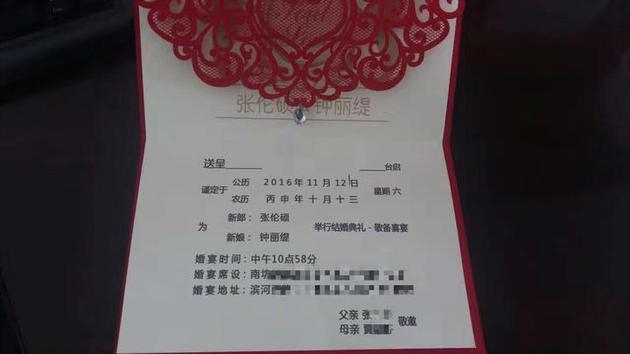 张伦硕 钟丽缇
送呈 台启
谨定于 公历 2016年11月12日 星期六
农历 丙申年十月十三
为 新郎：张伦硕 举行结婚典礼-敬备喜宴
新娘：钟丽缇
婚宴时间：中午10点58分
婚宴席设：南坊
婚宴地址：滨河
父亲 张 敬邀
母亲 贾